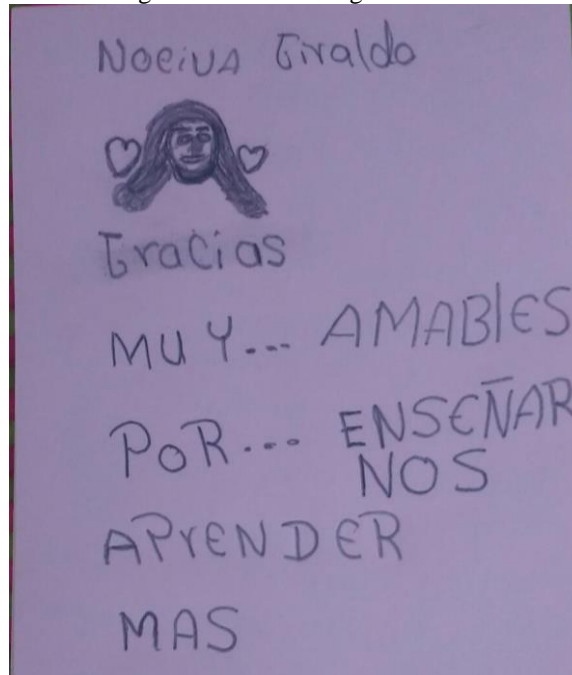 Noeiva Giraldo
Gracias
MUY... AMABlES
POR... ENSEÑAR
NOS
APrENDER
MAS